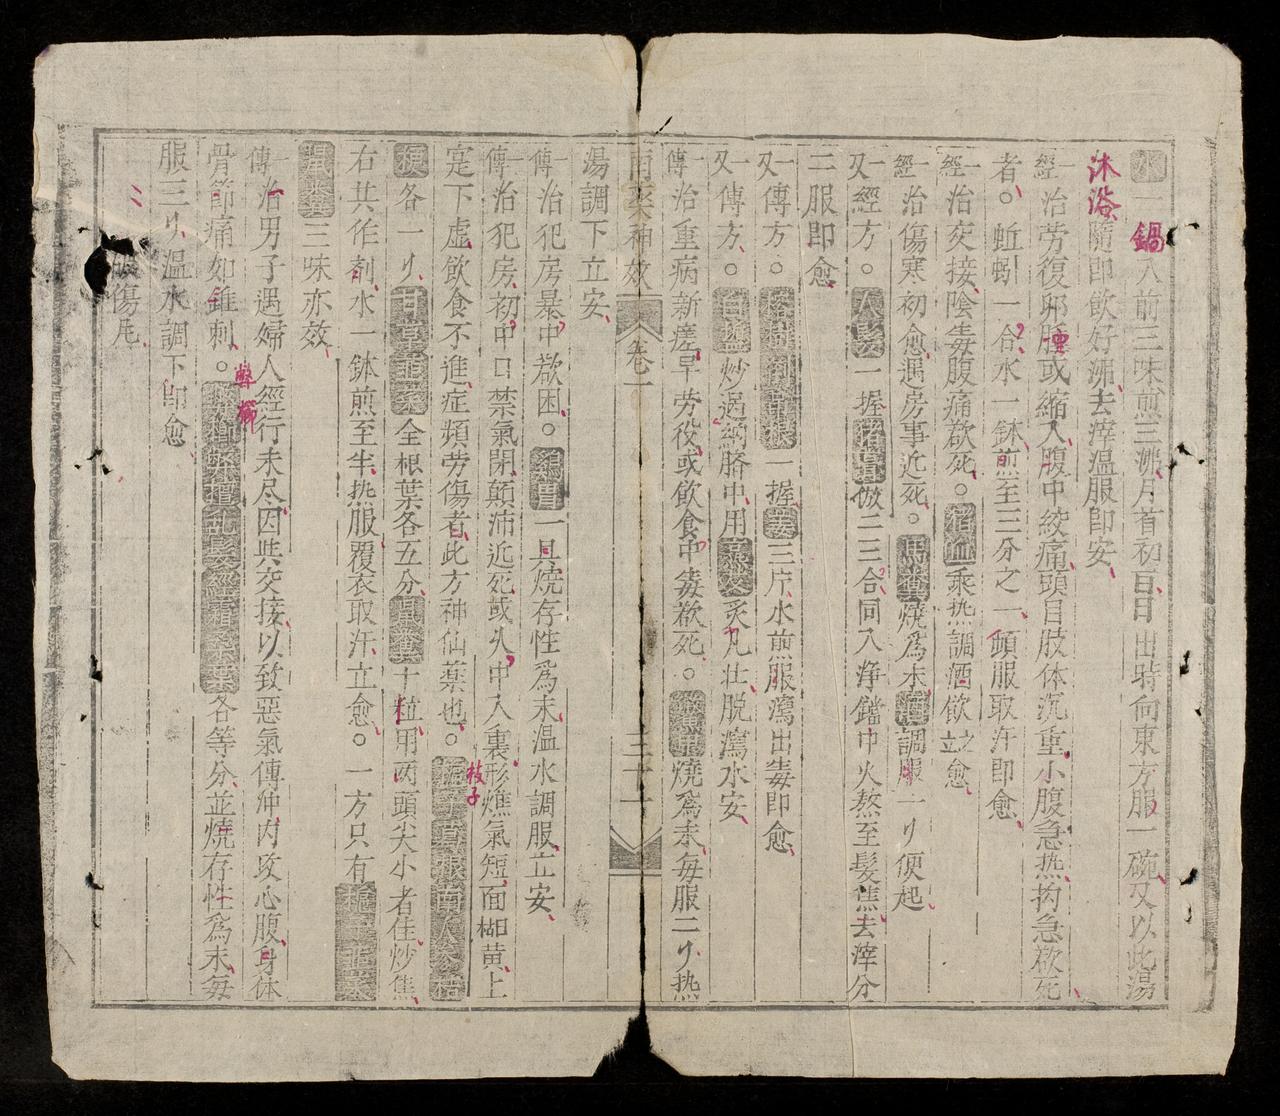 水一鍋入前三味煎三沸月首初一日日出時向東方服一碗又以此湯
沐浴隨即飲好沸去滓温服即安
經一治劳復卵腫或縮入腹中絞痛頭目肢体沉重小腹急热拘急欲死
者。蚯蚓一合水一鉢煎至三分之一頓服取汗即愈
經一治交接陰毒腹痛欲死。猪血乘热調酒飲之立愈
經一治傷寒初愈遇房事近死。馬糞燒爲末酒調服一刂便起
又一經方。人髮一握猪膏倣二三合同入净鐺中火熬至髮焦去滓分
二服即愈
又一傳方。一握姜三片水煎服瀉出毒即愈
又一傳方。白塩炒過納臍中用炙九壮脱瀉水安
傳一治重病新瘥早劳役或飲食中毒欲死。燒爲末每服二刂热
南藥神效 卷一 三十一
湯調下立安
傳一治犯房暴中欲困。鷄冑一具焼存性爲末温水調服立安
傳一治犯房初中口禁氣閉顛沛近死或火中入裏形憔氣短面糊黄上
寔下虚飲食不進症頻劳傷者此方神仙藥也。枝子
根各一刂甘草韮菜全根葉各五分鼠糞十粒用两頭尖小者住炒焦
右共作剤水一鉢煎至半热服覆衣取汗立愈。一方只有
鼠糞三味亦效
傳一治男子遇婦人經行未尽因與交接以致惡氣傳冲内攻心腹身体
骨節痛如錐刺。各等分並燒存性爲末每
服三刂温水調下即愈
傷凥